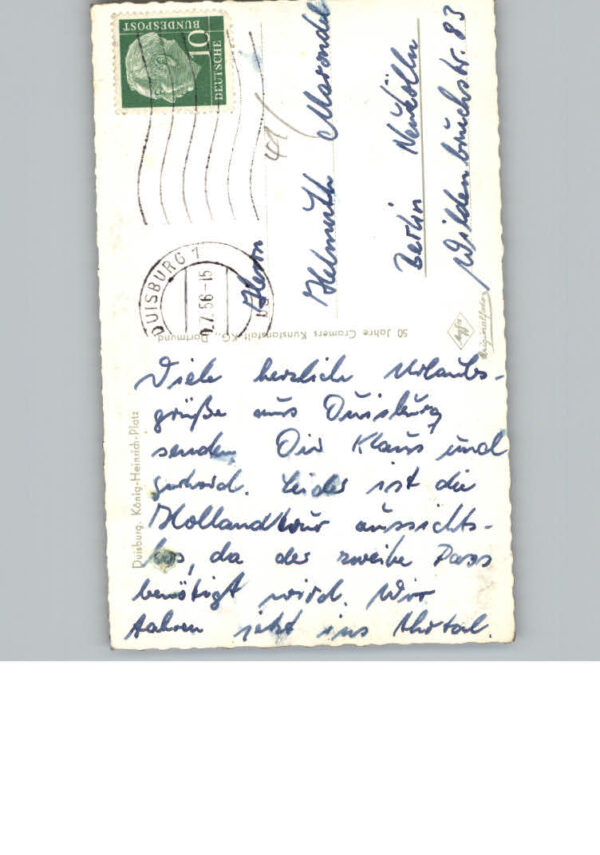 DEUTSCHE
BUNDESPOST
10
DUISBURG 1
.7.56-15
41/
Herrn
Helmuth
Berlin Neukölln
Wildenbruchstr. 83
50 Jahre Cramers Kunstanstalt KG., Dortmund
Agfa
Originalfoto
Duisburg, König-Heinrich-Platz
Viele herzliche Urlaubs-
grüße aus Duisburg
senden Dir Klaus und
Gerhard. Leider ist die
Hollandtour aussichts-
los, da der zweite Pass
benötigt wird. Wir
fahren jetzt ins Ahrtal.